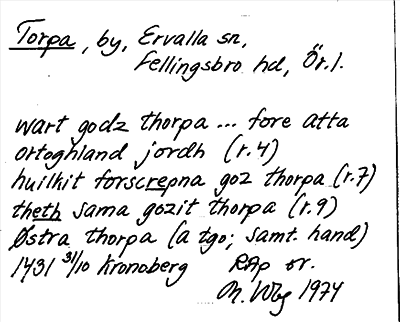 Torpa, by, Ervalla sn,
Fellingsbro hd, Ör. l.
wart godz thorpa ... fore atta
ortoghland jordh (r. 4)
huilkit forscrepna goz thorpa (r. 7)
theth sama gozit thorpa (r. 9)
Østra thorpa (a tgo; samt. hand)
1431 31/10 Kronoberg RAp or.
1974